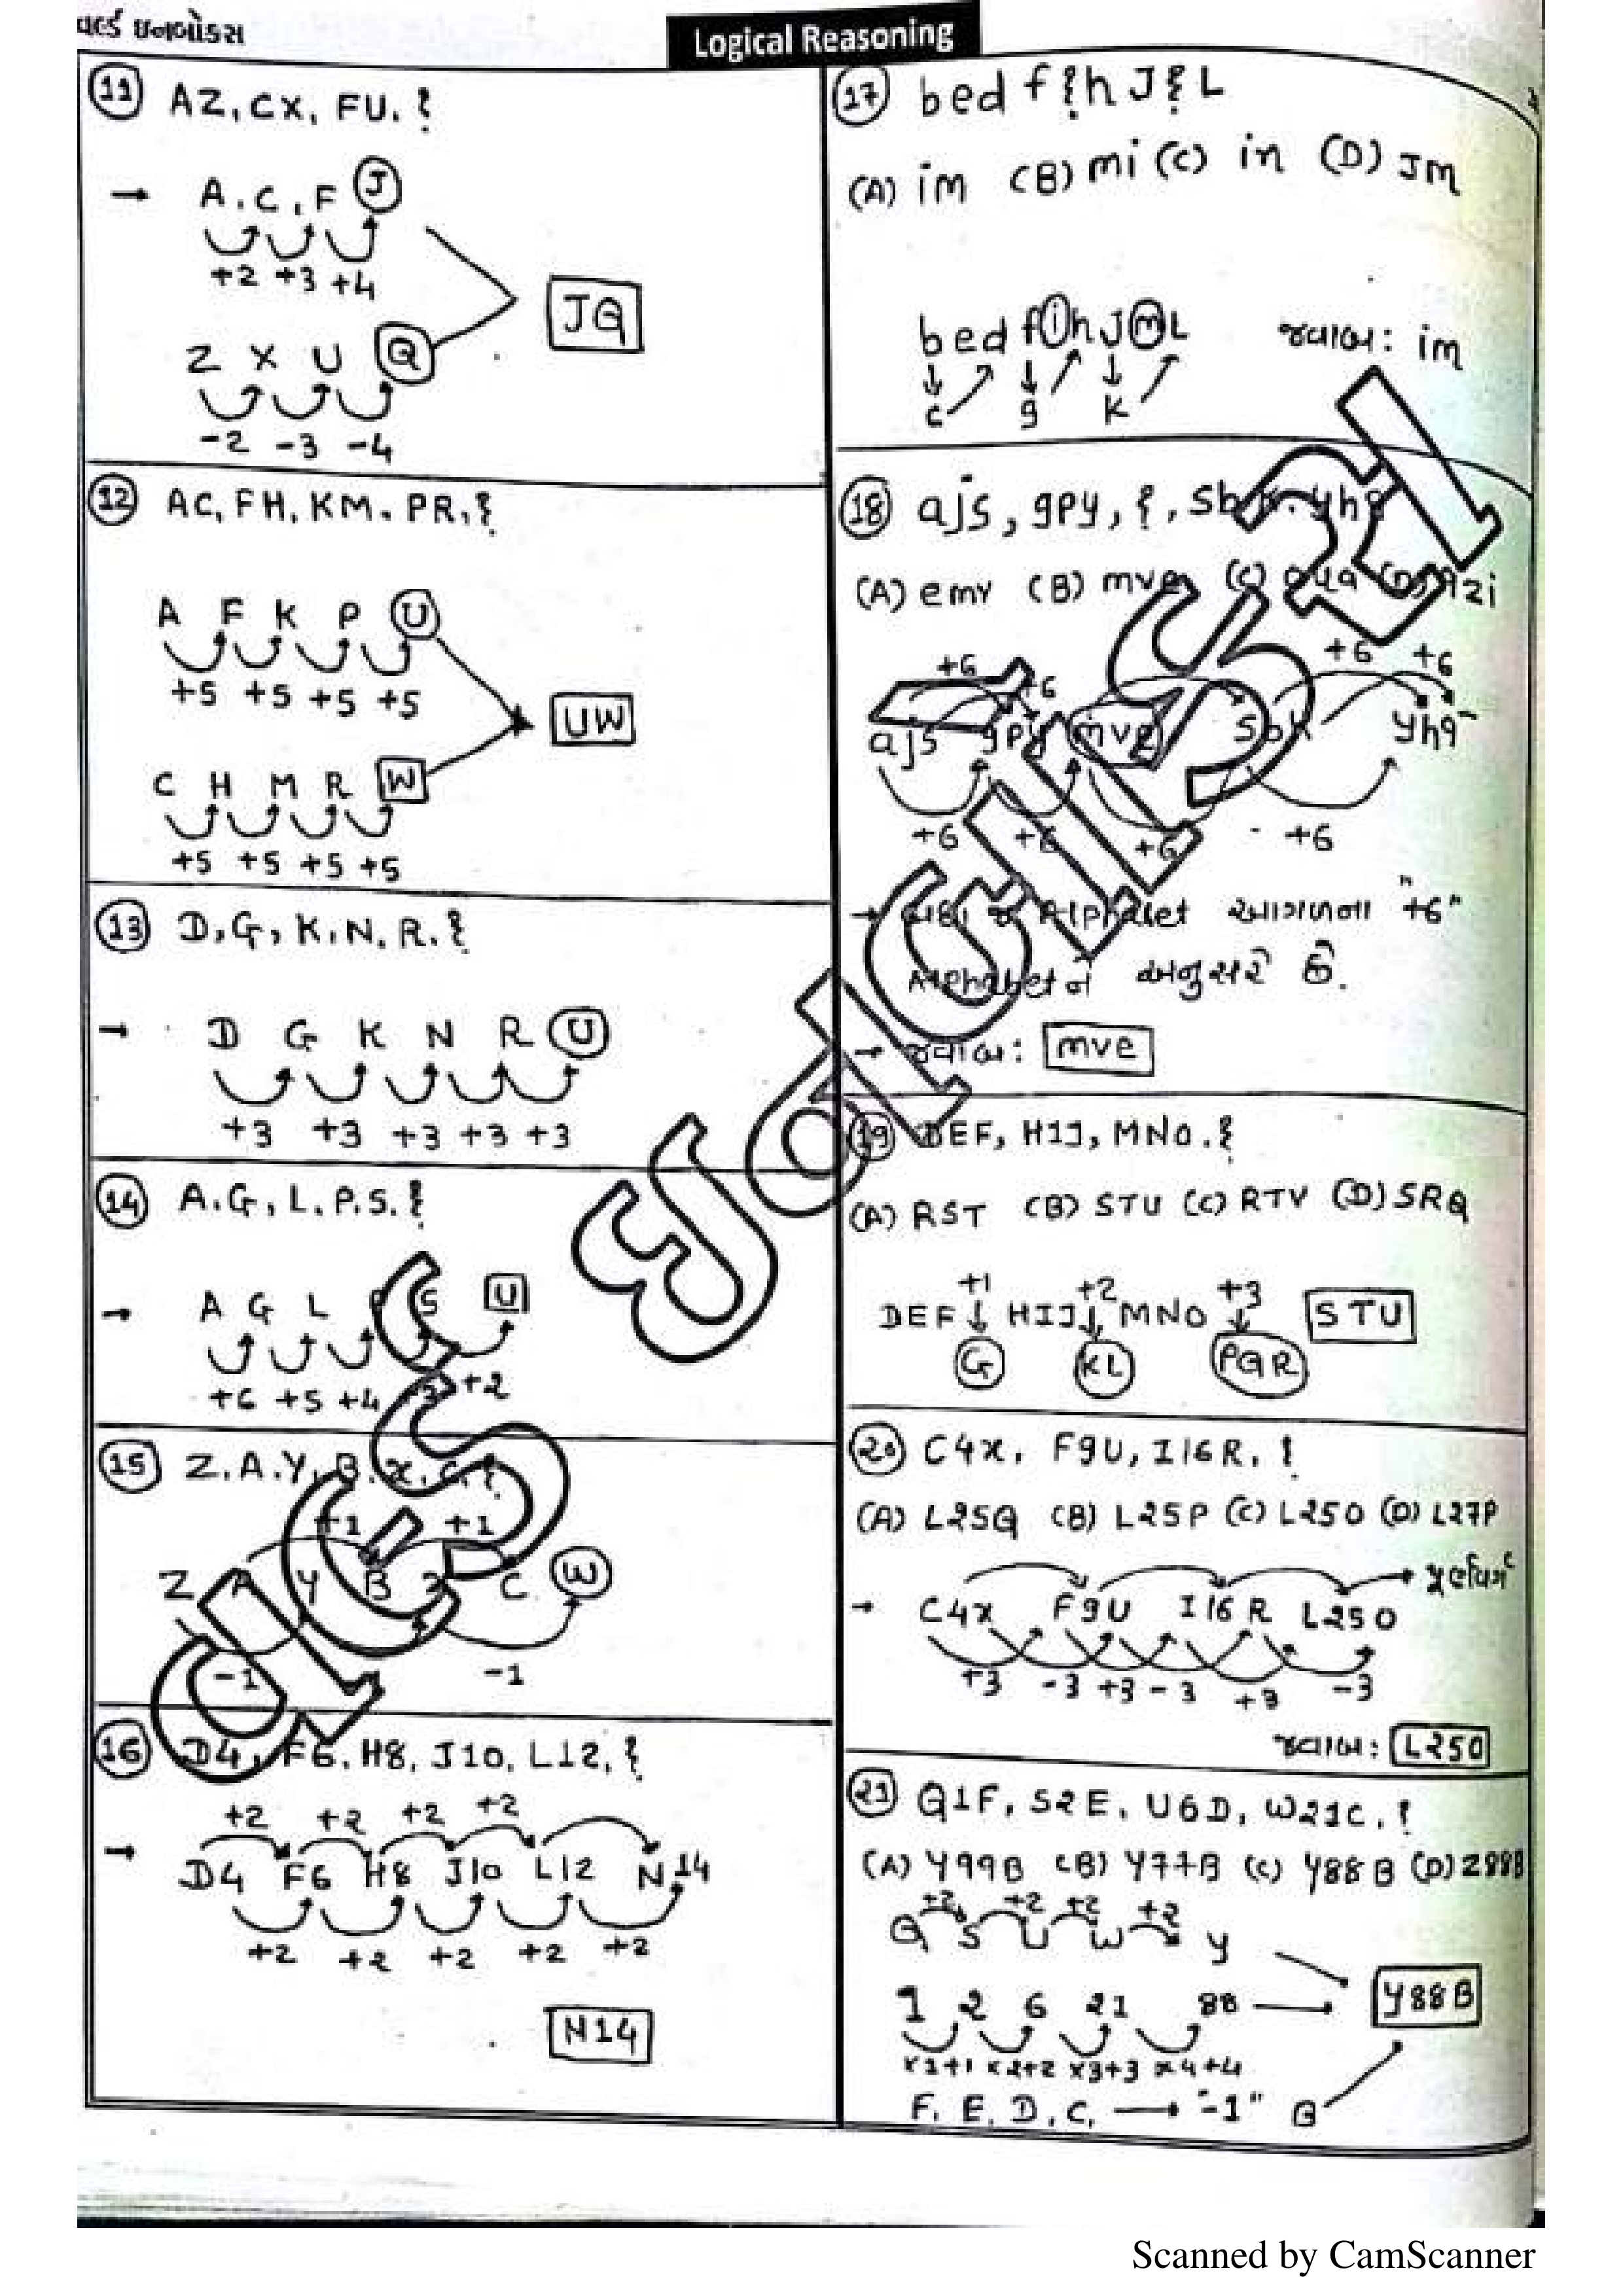 વર્લ્ડ ઇનબોક્સ
Logical Reasoning
11 AZ, CX, FU, ?
→ A, C, F J
+2 +3 +4
JQ
Z X U Q
-2 -3 -4
12 AC, FH, KM, PR, ?
A F K P U
+5 +5 +5 +5
UW
C H M R W
+5 +5 +5 +5
13 D, G, K, N, R, ?
→ D G K N R U
+3 +3 +3 +3 +3
14 A, G, L, P, S, ?
→ A G L P S U
+6 +5 +4 +3 +2
15 Z, A, Y, B, X, C, ?
+1 +1
Z A Y B X C W
-1 -1
16 D4, F6, H8, J10, L12, ?
+2 +2 +2 +2
→ D4 F6 H8 J10 L12 N14
+2 +2 +2 +2 +2
N14
17 bed f?h J?L
(A) im (B) mi (C) in (D) Jm
bed fih JmL જવાબ: im
c g k
18 ajs, gpy, ?, sbk, yhq
(A) emv (B) mve (C)
+6 +6 +6 +6
ajs gpy mve sbk yhq
+6 +6 +6 +6
→ Alphabet આગળના "+6"
Alphabet ને અનુસરે છે.
→ જવાબ: mve
19 DEF, HIJ, MNO, ?
(A) RST (B) STU (C) RTV (D) SRQ
+1 +2 +3
DEF ↓ HIJ ↓ MNO ↓ STU
G KL PQR
20 C4X, F9U, I16R, ?
(A) L25Q (B) L25P (C) L25O (D) L27P
→ પૂર્ણવર્ગ
→ C4X F9U I16R L25O
+3 -3 +3 -3 +3 -3
જવાબ: L25O
21 Q1F, S2E, U6D, W21C, ?
(A) Y99B (B) Y77B (C) Y88B (D) Z88B
+2 +2 +2 +2
Q S U W Y
1 2 6 21 88
Y88B
x1+1 x2+2 x3+3 x4+4
F, E, D, C, → "-1" B
Scanned by CamScanner